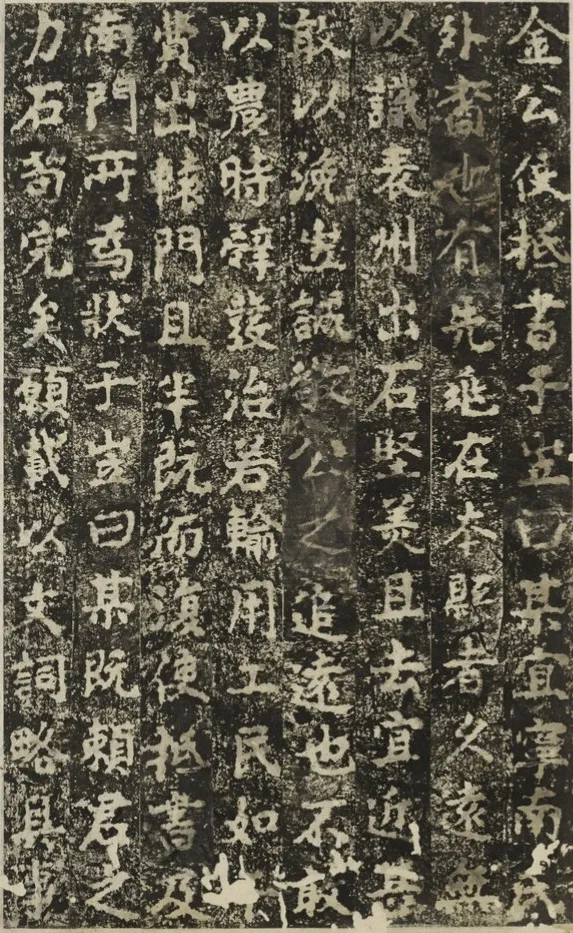 金公使抵書子岦曰某宜寧南氏
外裔也有先兆在本縣者久遠無
以識袁州出石堅美且去宜近吾
敢以浼岦誠敬公之追遠也不敢
以農時辭發治若輸用工民如
費出轅門且半既而復使抵書及
南門所為狀于岦曰某既賴君之
力石苟完矣願載以文詞略具事